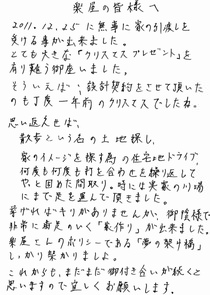 楽屋の皆様へ
2011.12.25に無事に家の引渡しを
受ける事が出来ました。
とても大きな「クリスマスプレゼント」を
有り難う御座いました。
そういえば、設計契約をさせて頂いた
のも丁度一年前のクリスマスでしたね。
思い返えせば、
散歩という名の土地探し、
家のイメージを探す為の住宅地ドライブ、
何度も何度も打ち合わせを繰り返して
やっと固めた間取り。時には実家の川場
にまで足を運んで頂きました。
挙げればキリがありませんが、御陰様で
非常に満足のいく「家作り」が出来ました。
楽屋さんのポリシーである「夢の架け橋」
しかり架かりましよ。
これからも、まだまだ御付き合いが続くと
思いますので宜しくお願いします。